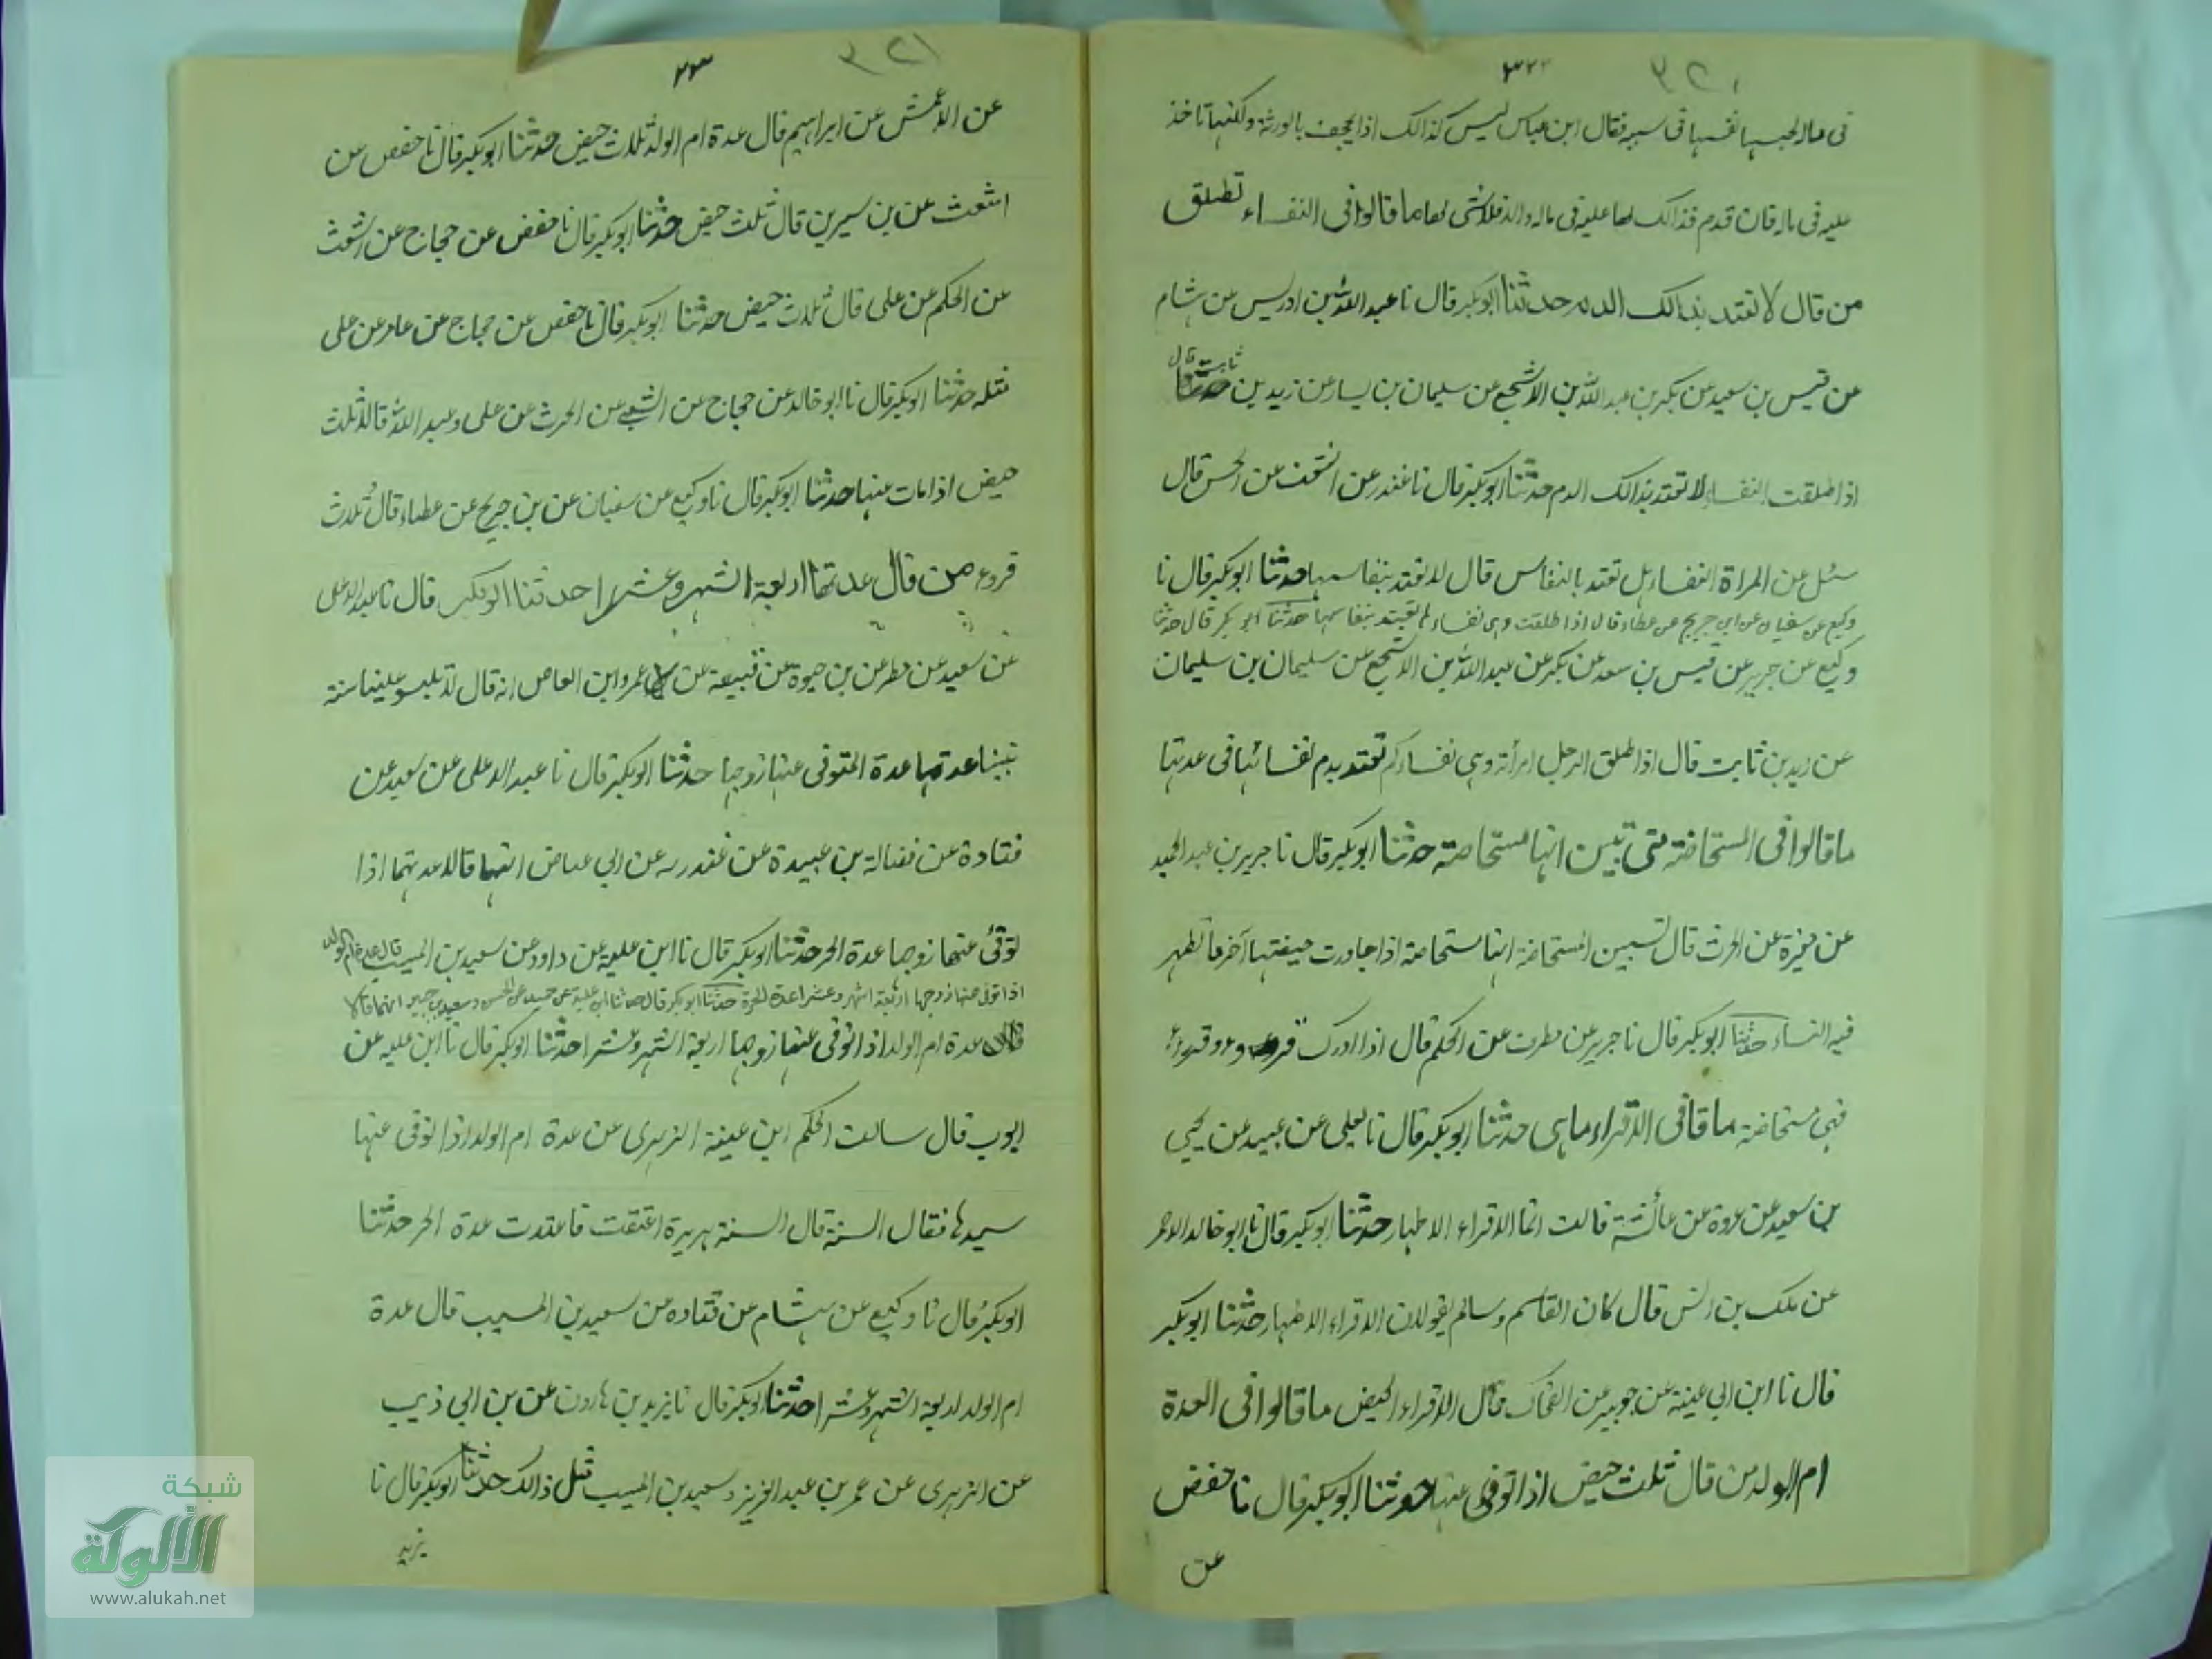 ٣٢٠
٣٢٢
فى ماله لحبسها نفسها فى سببه فقال ابن عباس ليس كذالك اذا يجحف بالورثة ولكنها تاخذ
عليه فى ماله فان قدم فذالك لها عليه فى ماله والا فلا شى لها ما قالوا فى النفساء تطلق
من قال لا تعتد بذالك الدم حدثنا ابوبكر قال نا عبد الله بن ادريس عن هشام
عن قيس بن سعيد عن بكر بن عبد الله بن الاشجع عن سليمان بن يسار عن زيد بن
ثابت قال
اذا طلقت النفساء لا تعتد بذالك الدم حدثنا ابوبكر قال نا غندر عن اشعث عن الحسن قال
سئل عن المراة النفساء هل تعتد بالنفاس قال لا تعتد بنفاسها حدثنا ابوبكر قال نا
وكيع عن سفيان عن ابن جريج عن عطاء قال اذا طلقت وهى نفساء لم تعتد بنفاسها حدثنا ابو بكر قال حدثنا
وكيع عن جرير عن قيس بن سعد عن بكر عن عبد الله بن الاشجع عن سليمان بن سليمان
عن زيد بن ثابت قال اذا طلق الرجل امرأته وهى نفساء لم تعتد بدم نفسائها فى عدتها
ما قالوا فى المستحاضة متى تبين انها مستحاضة حدثنا ابوبكر قال نا جرير بن عبد الحميد
عن مغيرة عن الحرث قال تسبين المستحاضة انها مستحاضة اذا جاورت حيضتها آخر ما تطهر
فيه النساء حدثنا ابوبكر قال نا جرير عن مطرف عن الحكم قال اذا ادرك قروء
فهى مستحاضة ما قا فى الاقراء ما هى حدثنا ابوبكر قال نا يعلى عن عبيد عن يحيى
بن سعيد عن عروة عن عائشة قالت انما الاقراء الاطهار حدثنا ابوبكر قال نا ابو خالد الاحمر
عن ملك بن انس قال كان القاسم وسالم يقولان الاقراء الاطهار حدثنا ابوبكر
قال نا ابن ابى عينة عن جويبر عن الضحاك قال الاقراء الحيض ما قالوا فى العدة
ام الولد من قال ثلث حيض اذا توفى عنها حدثنا ابوبكر قال نا حفض
عن
٣٢١
٢٣
عن الاعمش عن ابراهيم قال عدة ام الولد ثلاث حيض حدثنا ابوبكر قال نا حفص عن
اشعث عن بن سيرين قال ثلث حيض حدثنا ابوبكر قال نا حفص عن حجاج عن اشعث
عن الحكم عن على قال ثلاث حيض حدثنا ابوبكر قال نا حفص عن حجاج عن عامر عن على
مثله حدثنا ابوبكر قال نا ابو خالد عن حجاج عن الشعبى عن الحرث عن على وعبد الله قالا ثلث
حيض اذا مات عنها حدثنا ابوبكر قال نا وكيع عن سفيان عن بن جريج عن عطاء قال ثلاث
قروء من قال عدتها اربعة اشهر وعشرا حدثنا ابوبكر قال نا عبد الاعلى
عن سعيد عن مطر عن بن حيوة عن قبيعة عن عمرو ابن العاص انه قال لا تلبسو علينا سنة
نبينا عدتها عدة المتوفى عنها زوجها حدثنا ابوبكر قال نا عبد الاعلى عن سعيد عن
قتادة عن فضالة بن عبيدة عن عن ابى عياض انهما قالا عدتهما اذا
توفى عنها زوجها عدة الحر حدثنا ابوبكر قال نا ابن عليه عن داود عن سعيد بن المسيب قال عدة ام الولد
اذا توفى عنها زوجها اربعة اشهر وعشرا عدة الحرة حدثنا ابوبكر قال حدثنا ابن علية عن عن الحسن وسعيد بن جبير انهما قالا
عدة ام الولد اذا توفى عنها زوجها اربعة اشهر وعشرا حدثنا ابوبكر قال نا ابن عليه عن
ايوب قال سالت الحكم ابن عينة الزهرى عن عدة ام الولد اذا توفى عنها
سيدها فقال السنة قال السنة بريرة اعتقت فاعتدت عدة الحر حدثنا
ابوبكر قال نا وكيع عن هشام عن قتاده عن سعيد بن المسيب قال عدة
ام الولد اربعة اشهر وعشرا حدثنا ابوبكر قال نا يزيد بن هارون عن بن ابى ذيب
عن الزهرى عن عمر بن عبد العزيز وسعيد بن المسيب مثل ذالك حدثنا ابوبكر قال نا
يزيد
شبكة
الألوكة
www.alukah.net